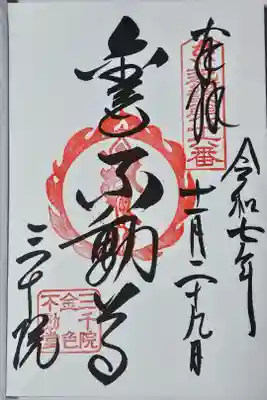 奉拝
令和七年
十一月二十九日
金色不動尊
三千院
三千院
金色
不動堂